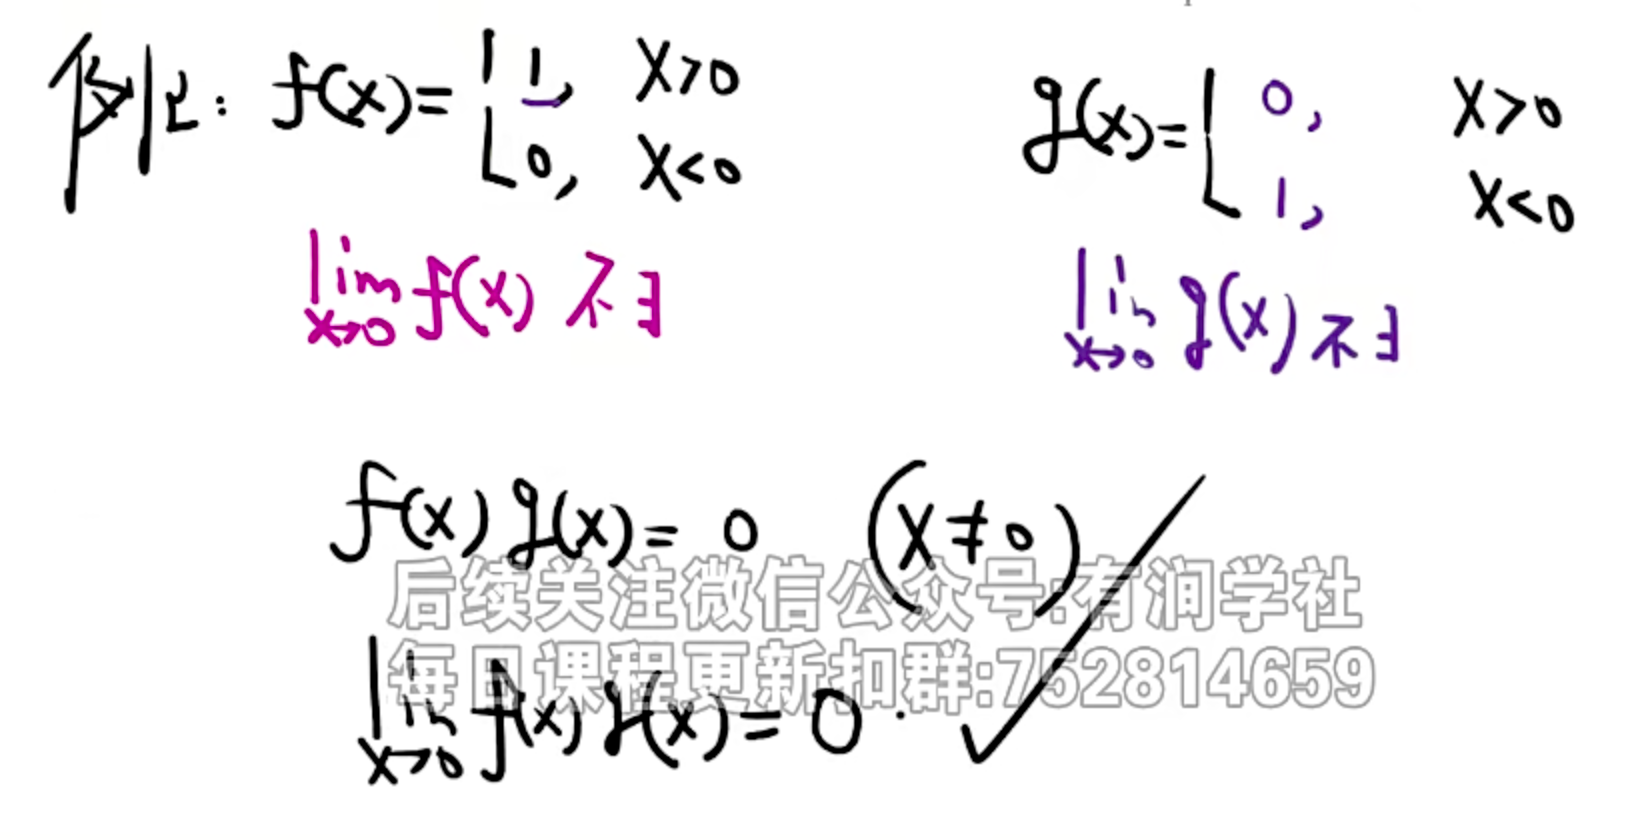 例如: f(x)= { 1, x>0
0, x<0
g(x)= { 0, x>0
1, x<0
lim x→0 f(x) 不∃
lim x→0 g(x) 不∃
f(x)g(x)= 0 (x≠0)
后续关注微信公众号:有润学社
每日课程更新扣群:752814659
lim x→0 f(x)g(x)=0.